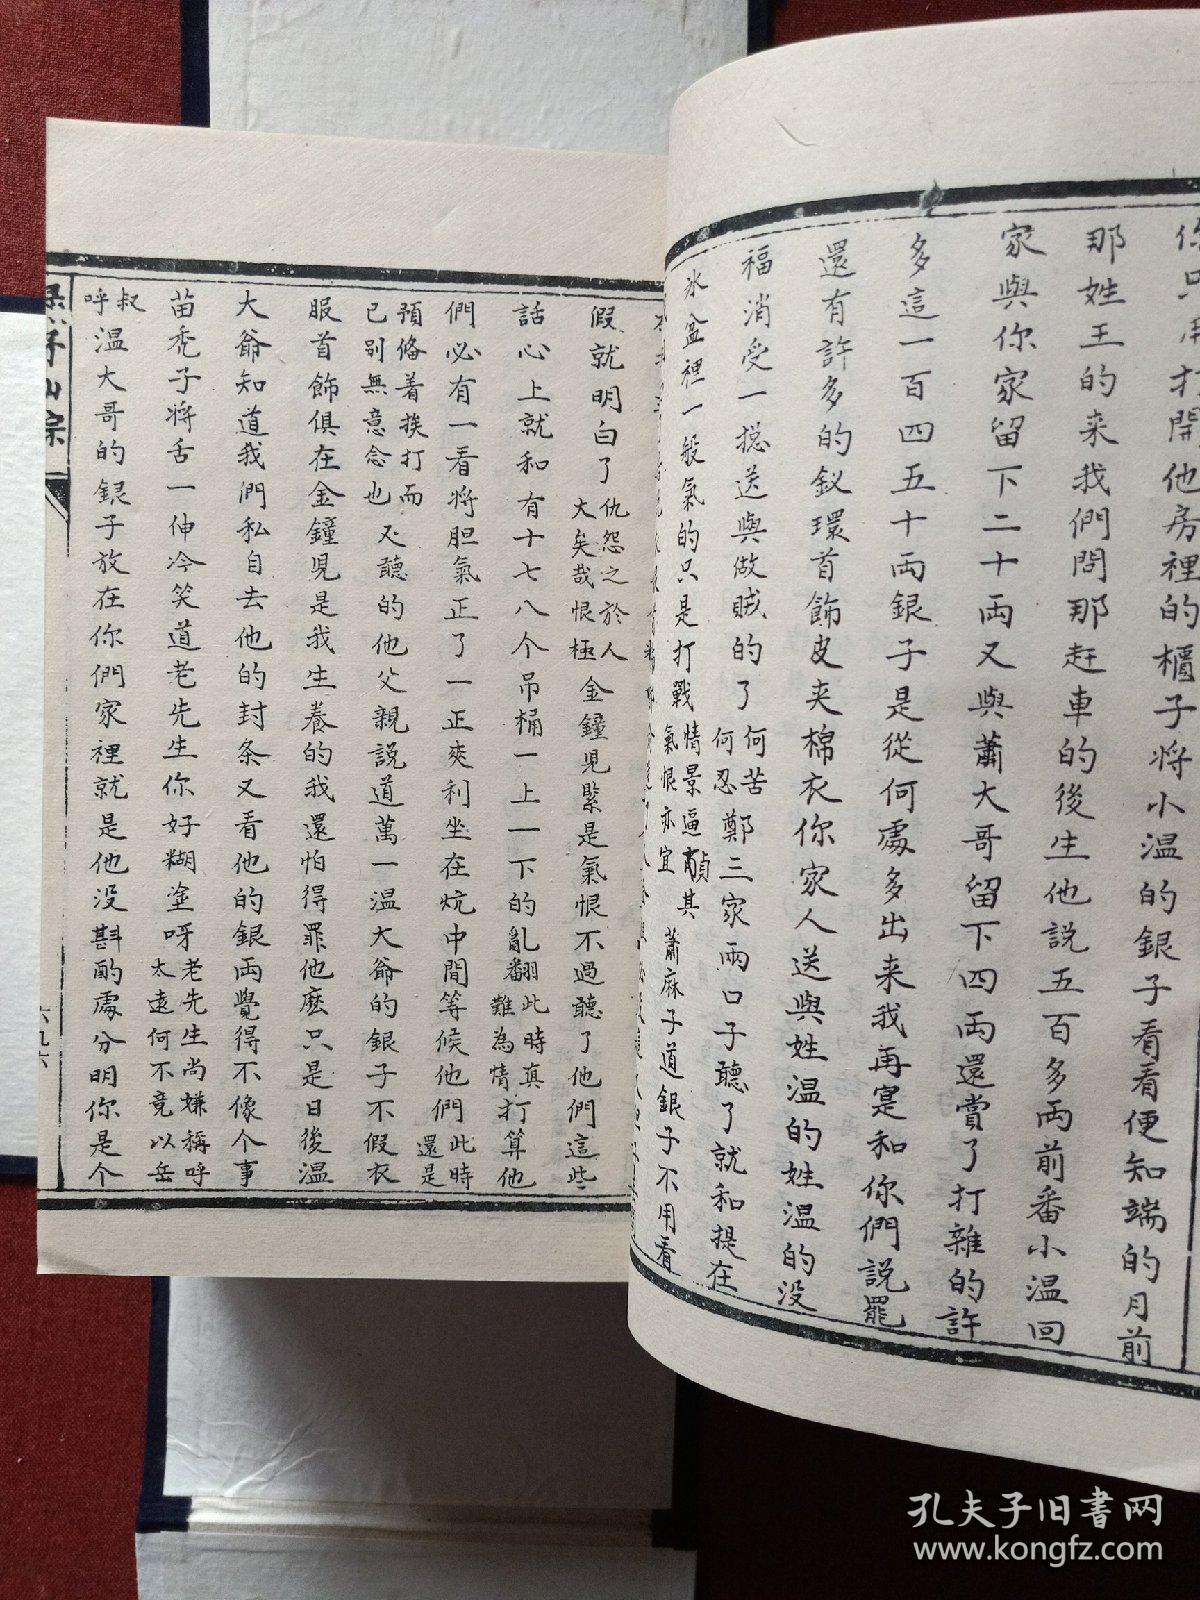 開他房裡的櫃子將小温的銀子看看便知端的月前
那姓王的来我們問那赶車的後生他説五百多両前番小温回
家與你家留下二十両又與蕭大哥留下四両還賞了打雜的許
多這一百四五十両銀子是從何處多出来我再寔和你們説罷
還有許多的釵環首飾皮夹棉衣你家人送與姓温的姓温的没
福消受一搃送與做賊的了何苦何忍鄭三家兩口子聽了就和提在
氷盆裡一般氣的只是打戰情景逼真其氣恨亦宜蕭麻子道銀子不用看
假就明白了仇怨之於人大矣哉恨極金鐘児緊是氣恨不過聽了他們這些
話心上就和有十七八个吊桶一上一下的亂翻此時真難為情打算他
們必有一看將胆氣正了一正爽利坐在炕中間等候他們此時還是
預偹着挨打而已别無意念也又聽的他父親説道萬一温大爺的銀子不假衣
服首飾俱在金鐘児是我生養的我還怕得罪他麽只是日後温
大爺知道我們私自去他的封条又看他的銀両覺得不像个事
苗秃子将舌一伸冷笑道老先生你好糊塗呀老先生尚嫌稱呼太遠何不竟以岳
叔呼温大哥的銀子放在你們家裡就是他没斟酌處分明你是个
六九六
孔夫子旧书网
www.kongfz.com